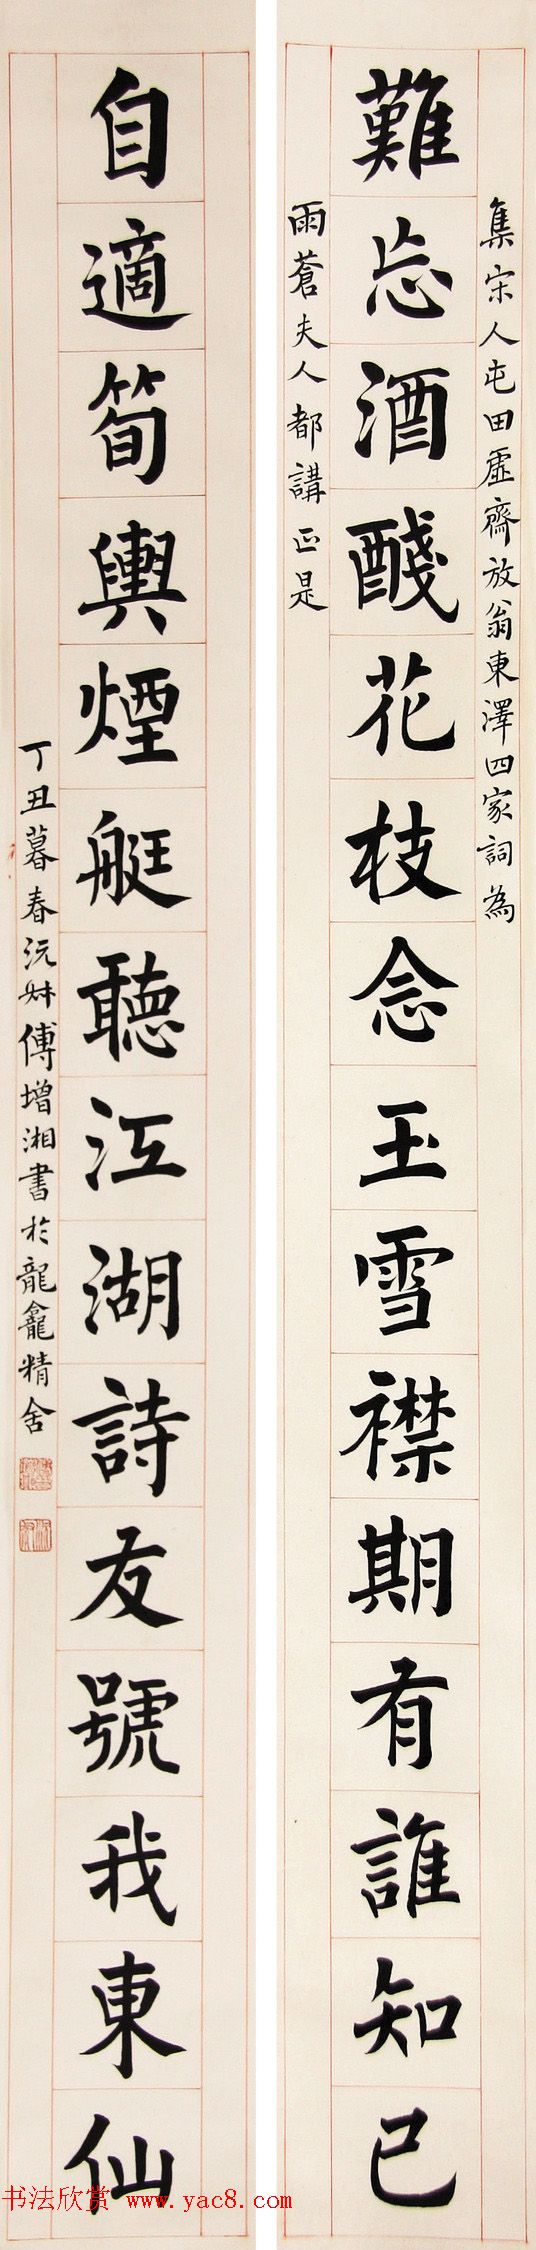 集宋人屯田虛齋放翁東澤四家詞為
難忘酒醆花枝念玉雪襟期有誰知己
雨蒼夫人都講正是
自適筍輿煙艇聽江湖詩友號我東仙
丁丑暮春沅叔傅增湘書於龍龕精舍
书法欣赏 www.yac8.com